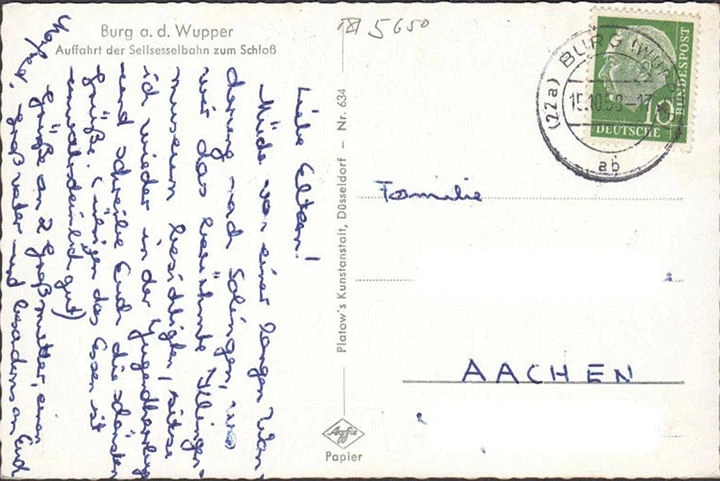 Burg a. d. Wupper
Auffahrt der Seilsesselbahn zum Schloß
Liebe Eltern!
Müde von einer langen Wan-
derung nach Solingen, wo
wir das berühmte Klingen-
museum besichtigten, sitze
ich wieder in der Jugendherberge
und schreibe Euch die schönsten
Grüße. (übrigens das Essen ist
gut)
Grüße an 2 Großmütter, einen
Großvater und besonders an Euch
Platow's Kunstanstalt, Düsseldorf - Nr. 634
Agfa
Papier
5650
BURG (WUPPER)
(22a)
15.10.58-17
ab
10
DEUTSCHE
BUNDESPOST
Familie
AACHEN